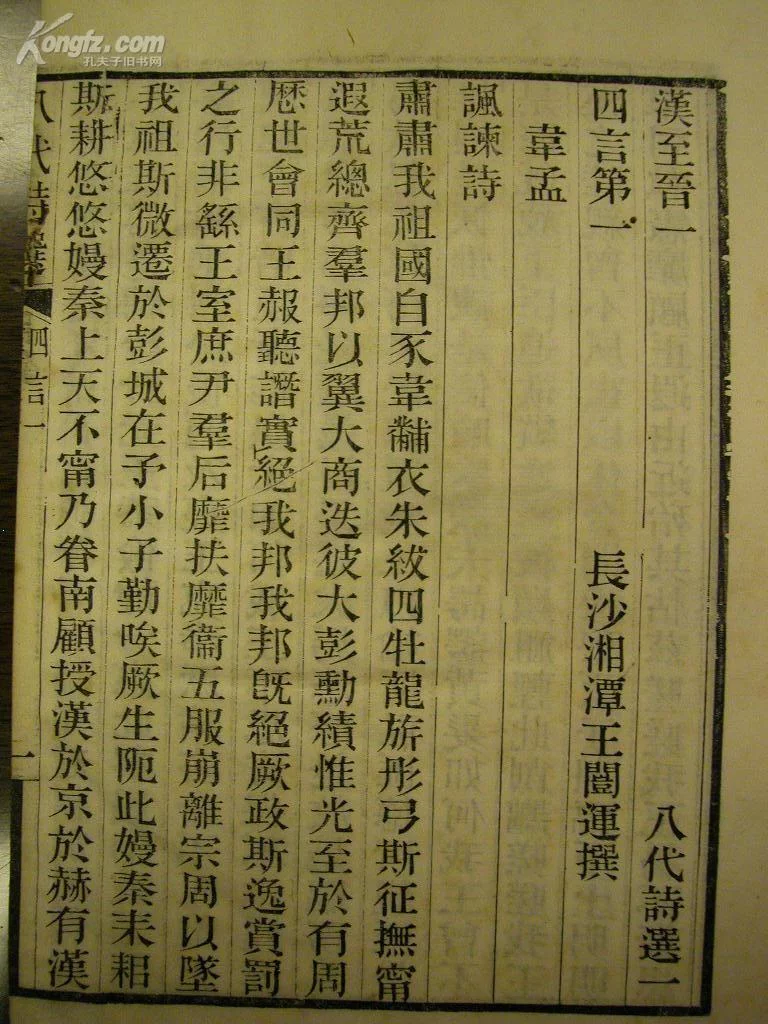 Kongfz.com
孔夫子旧书网
漢至晉一 八代詩選一
四言第一 長沙湘潭王闓運撰
韋孟
諷諫詩
肅肅我祖國自豕韋黼衣朱紱四牡龍旂彤弓斯征撫甯
遐荒總齊羣邦以翼大商迭彼大彭勳績惟光至於有周
歷世會同王赧聽譖實絕我邦我邦旣絕厥政斯逸賞罰
之行非繇王室庶尹羣后靡扶靡衞五服崩離宗周以墜
我祖斯微遷於彭城在予小子勤唉厥生阨此嫚秦耒耜
斯耕悠悠嫚秦上天不甯乃眷南顧授漢於京於赫有漢
八代詩選 四言一 一